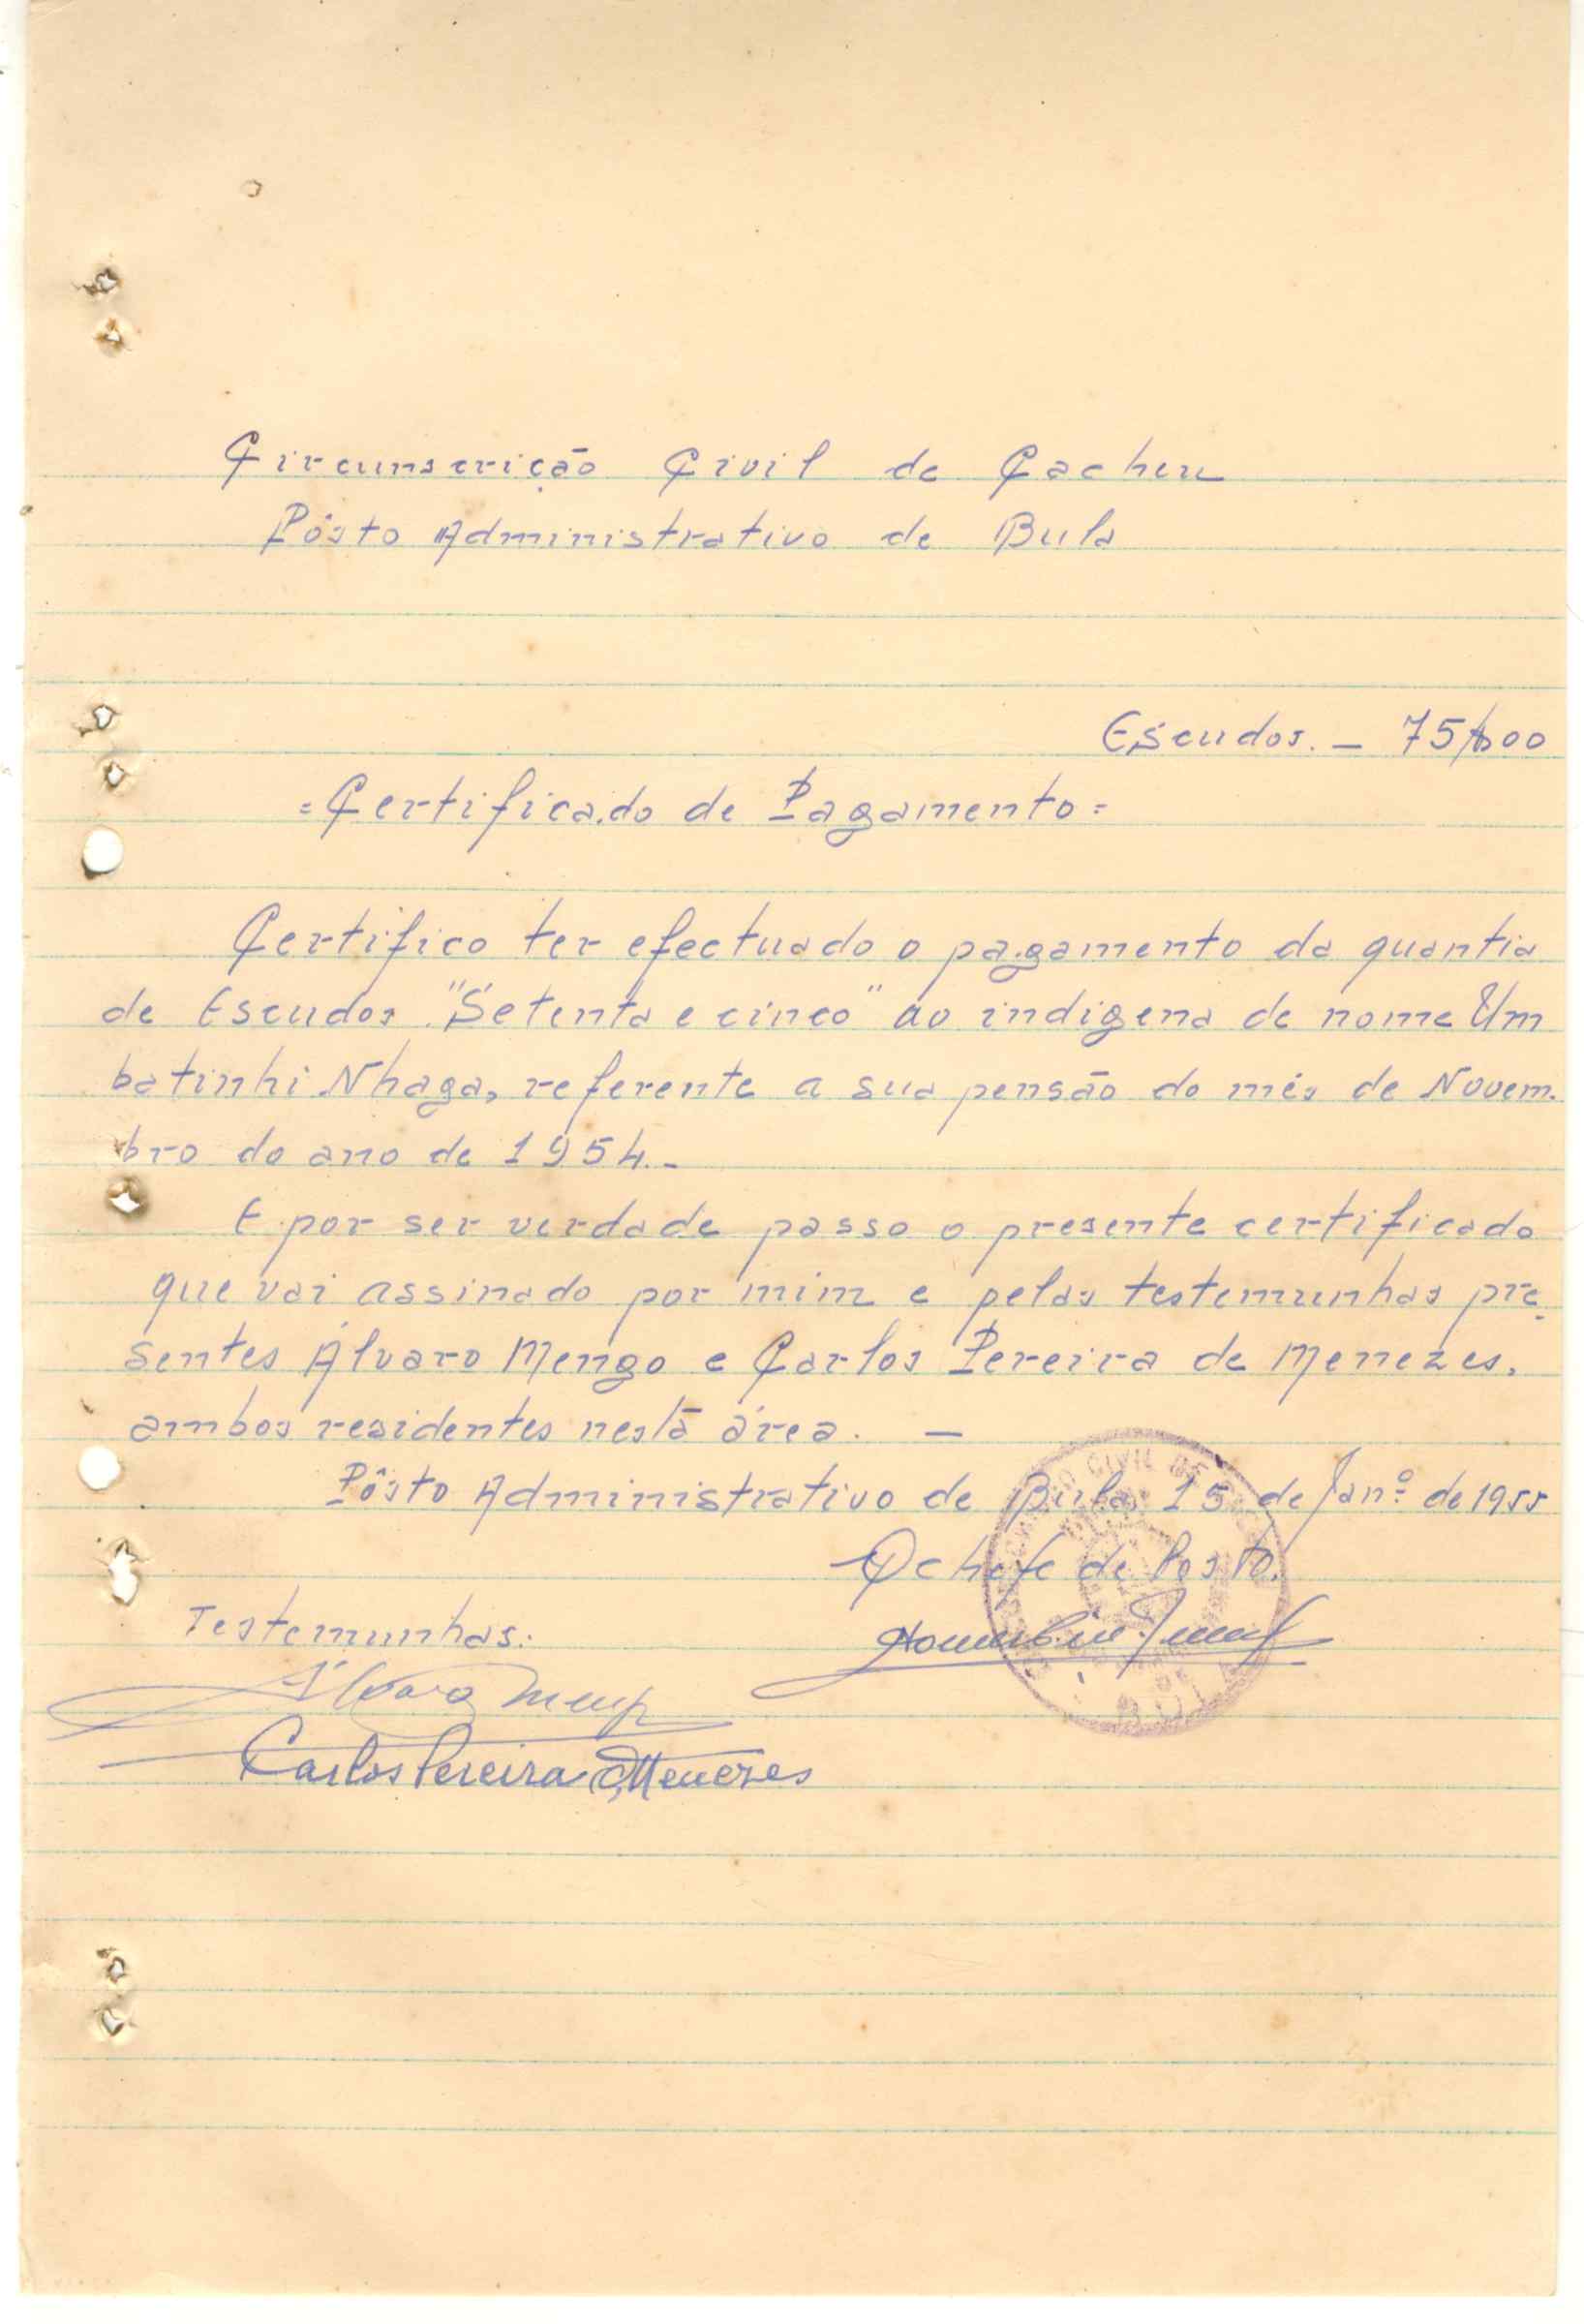 Circunscrição Civil de Cacheu
Pôsto Administrativo de Bula
Escudos. — 75$00
= Certificado de Pagamento =
Certifico ter efectuado o pagamento da quantia
de Escudos "Setenta e cinco" ao indigena de nome Um
batinhi Nhaga, referente a sua pensão do mês de Novem-
bro do ano de 1954.-
E por ser verdade passo o presente certificado
que vai assinado por mim e pelas testemunhas pre-
sentes Álvaro Mengo e Carlos Pereira de Menezes,
ambos residentes nesta área. —
Pôsto Administrativo de Bula, 15 de Janº de 1955
O chefe de Posto.
Testemunhas:
Álvaro Mengo
Carlos Pereira de Menezes
CIVIL DE